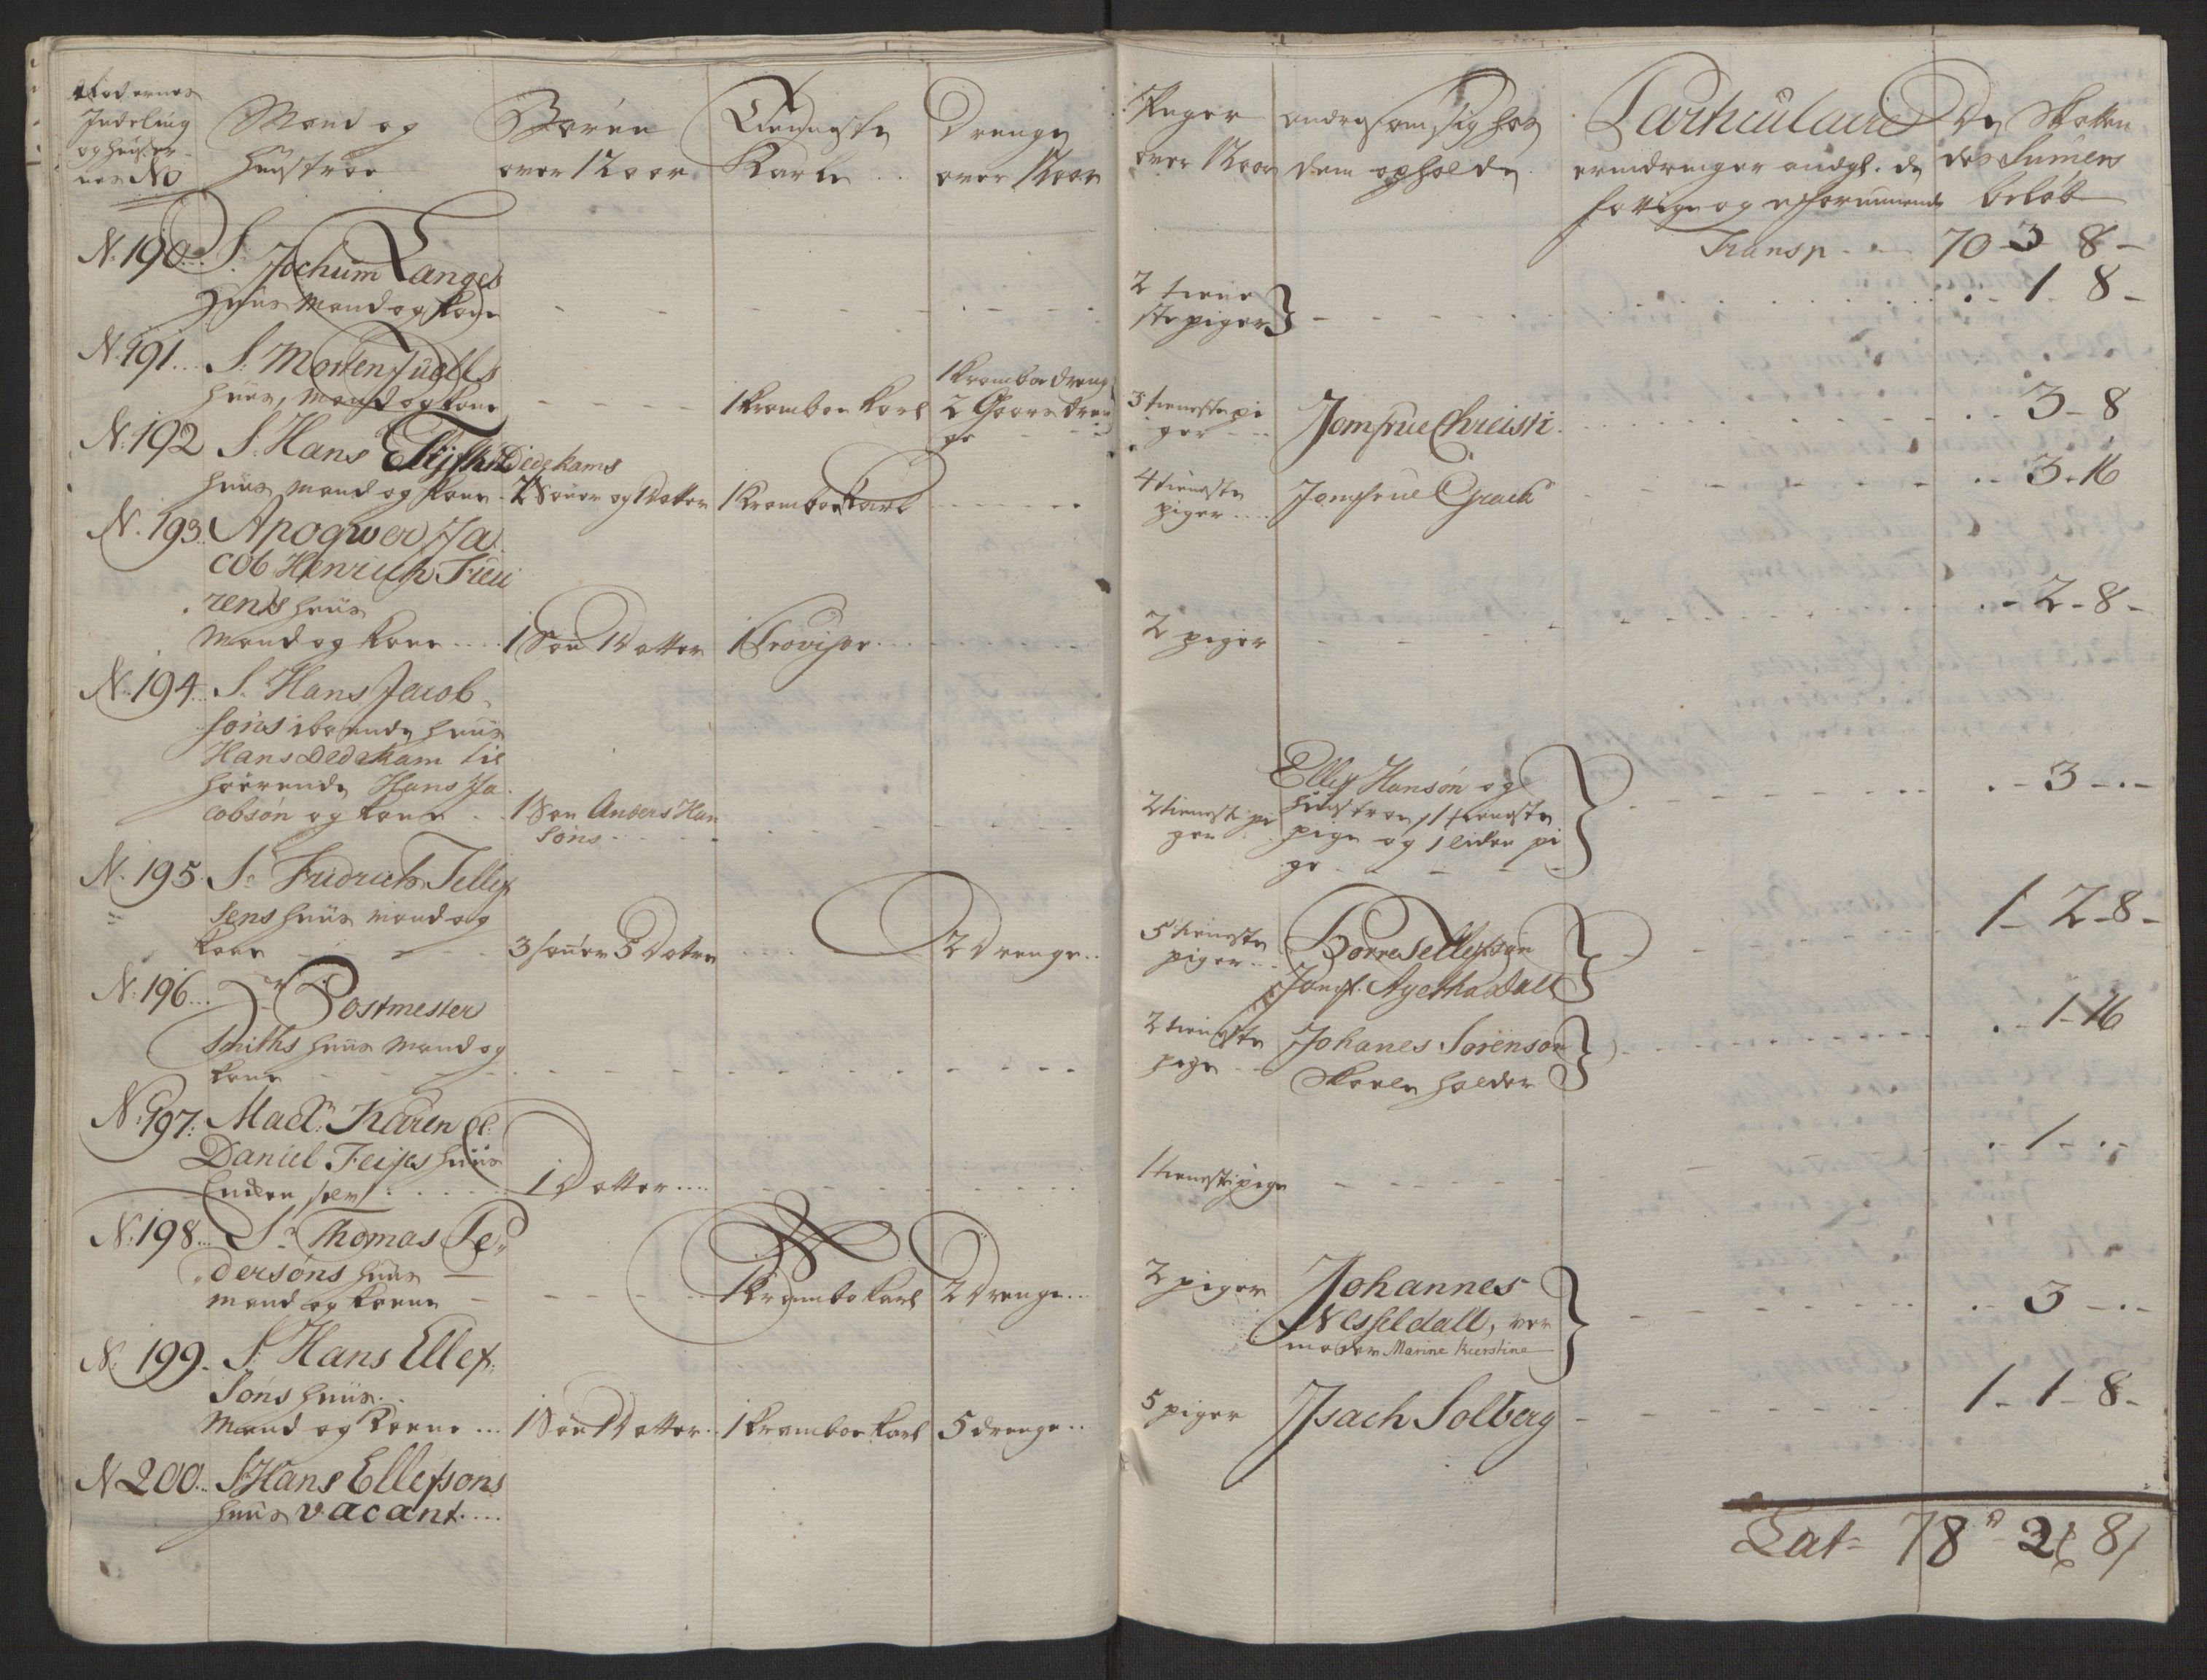 Rodernes
Indeling
og huser-
nes No
Mand og
hustroe
Børen
over 12 aar
Tienneste
Karle
Drenge
over 12 aar
Piger
over 12 aar
andre som sig hos
dem opholde
Particulaire
erindringer andgl. de
fattige og uformuende
De Skatten-
des Sumens
beløb
Transp. 70-3-8-
N. 190. Sr. Jochum Langes
Huus Mand og Kone
2 tiene
ste piger
1-8-
N. 191. Sr. Morten Juells
huus, Mand og Kone
1 Kramboe Karl
1 Kramboe dreng
2 Gaars dren
ge
3 tieneste pi
ger
Jomfrue Chreisti
3-8
N. 192 Sr. Hans Dedekams
huus Mand og Kone
2 Søner og 1 Datter
1 Kramboe Karl
4 tieneste
piger
Jomfrue
3-16
N. 193. Apoqwer Ja
cob Henrich
rens huus
Mand og Kone
1 Søn 1 Datter
1 Provisor
2 piger
2-8-
N. 194. Sr. Hans Jacob
søns iboende huus
Hans Dedekam til
hørende Hans Ja
cobsøn og Kone
1 Søn Anders Han
søns
2 tieneste pi
ger
Ellef Hansøn og
hustroe, 1 tieneste
pige og 1 liden pi
ge
3-
N. 195. Sr. Fridrich Tellef
sens huus Mand og
Kone
3 søner 5 Døtre
2 Drenge
5 tieneste
piger
Børre Tellefsøn
Jomf. Agetha Dall
1-2-8-
N. 196. Postmester
Smiths huus Mand og
Kone
2 tieneste
pige
Johanes Sørensøn
Skoele holder
1-16
N. 197. Mad. Karen Sl.
Daniel Feijes huus
Encken self
1 Datter
1 tieneste pige
1-
N. 198. Sr. Thomas Pe
dersøns huus
Mand og Konne
1 Krambo Karl
2 Drenge
2 piger
Johannes
Nessfeldall, ver
moder Marine Kierstine
3-
N. 199. Sr. Hans Ellef
søns huus
Mand og Konne
1 Søn 1 Datter
1 Kramboe Karl
5 drenge
5 piger
Isach Solberg
1-1-8-
N 200. Sr Hans Ellefsøns
huus vacant
Lat 78-2-8